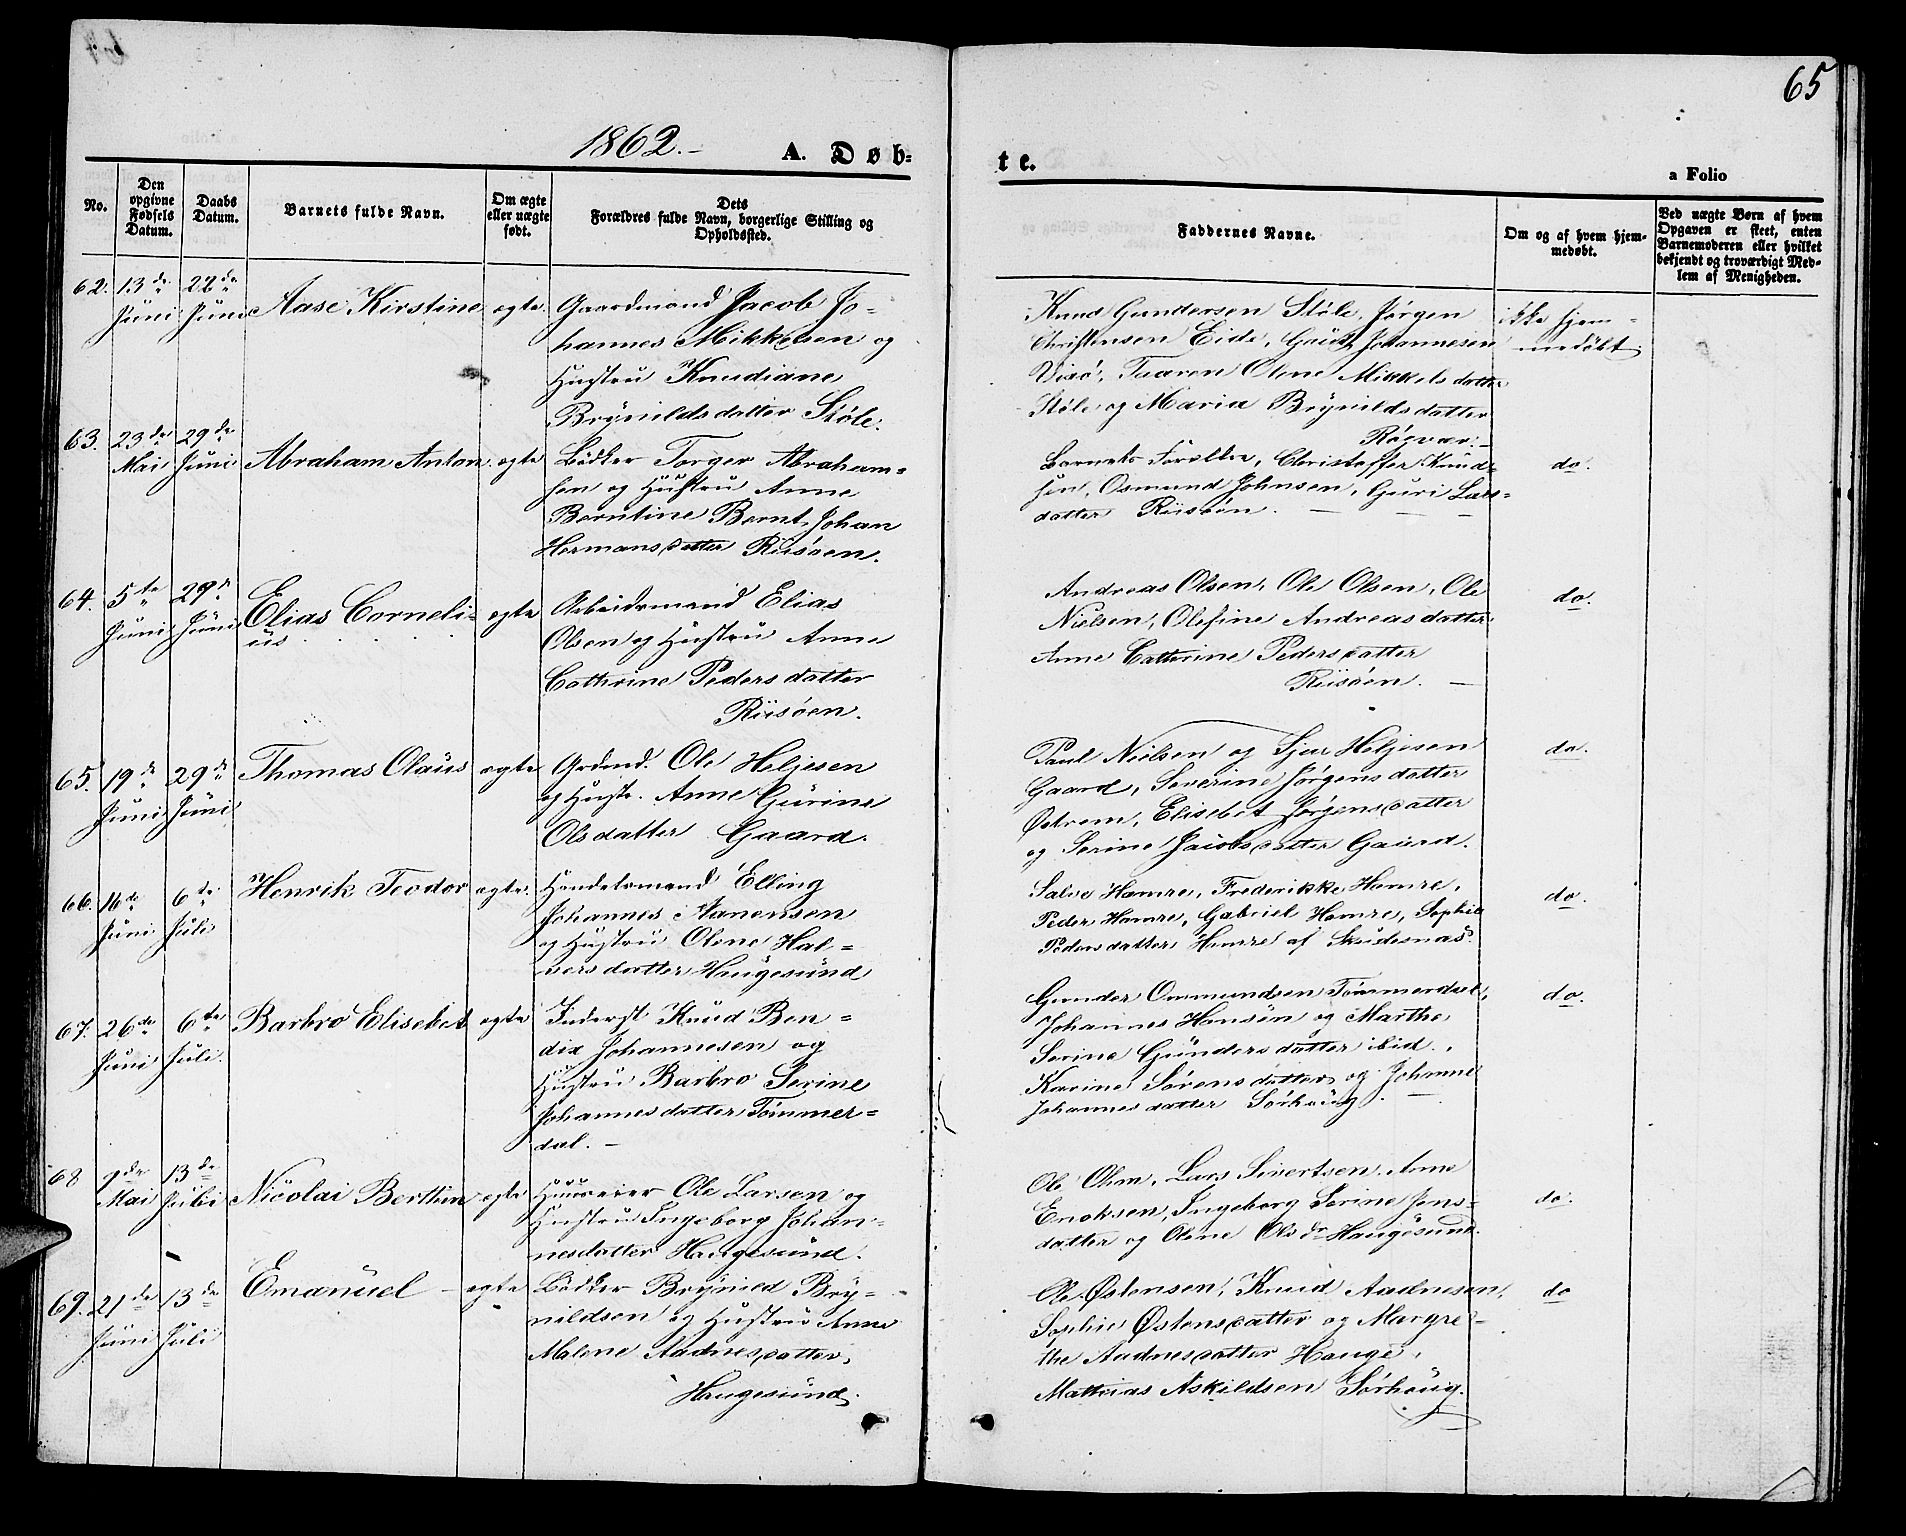 65
1862.-
A. Døb=
te.
a Folio
No.
Den opgivne Fødsels Datum.
Daabs Datum.
Barnets fulde Navn.
Om ægte eller uægte født.
Dets Forældres fulde Navn, borgerlige Stilling og Opholdssted.
Faddernes Navne.
Om og af hvem hjem-
medøbt.
Ved uægte Børn af hvem
Opgaven er skeet, enten
Barnemoderen eller hvilket
bekjendt og troværdigt Med-
lem af Menigheden.
62. 13de Juni 22de Juni Aase Kirstine ægte
Gaardmand Jacob Jo-
hannes Mikkelsen og
Hustru Knudiane
Brynildsdatter Støle.
Knud Gundersen Støle, Jørgen
Christensen Eide, Johannesen
Olene Mikkelsdatter
Støle og Maria Brynildsdatter
Røgvær.-
ikke hjem-
medøbt.
63. 23de Mai 29de Juni Abraham Anton. ægte
Bødker Torger Abraham=
sen og Hustru Anne
Berntine Bernt Johan
Hermansdatter Riisøen.
Barnets Forældre, Christoffer Knud=
sen, Osmund Johnsen, Guri Lars=
datter Riisøen.
do.
64. 5te Juni 29de Juni Elias Corneli-
us ægte
Arbeidsmand Elias
Olsen og Hustru Anne
Cathrine Pedersdatter
Riisøen.
Andreas Olsen, Ole Olsen, Ole
Nielsen, Olefine Andreasdatter
Anne Cathrine Pedersdatter
Riisøen.
do.
65. 19de Juni 29de Juni Thomas Olaus ægte
Grdmd. Ole Heljesen
og Hustr. Anne Gurine
Olsdatter Gaard.
Paul Nielsen og Sjur Heljesen
Gaard, Severine Jørgensdatter
Østrem, Elisebet Jørgensdatter
og Serine Jacobsdatter Gaard.
do.
66. 16de Juni 6te Juli Henrik Teodor ægte.
Handelsmand Elling
Johannes Aanensen
og Hustru Olene Hal=
versdatter Haugesund
Salve Hamre, Frederikke Hamre,
Peder Hamre, Gabriel Hamre, Sophie
Pedersdatter Hamre af Skudesnæs.
do.
67. 26de Juni 6te Juli. Barbro Elisebet ægte
Inderst Knud Ben=
dix Johannesen og
Hustru Barbro Serine
Johannesdatter Tømmer=
dal. -
Gunder Ommundsen Tømmerdal,
Johannes Hansen og Marthe
Serine Gundersdatter ibid.,
Karine Sørensdatter og Johanne
Johannesdatter Sørhaug.
do.
68 9de Mai 13de Juli Nicolai Berthin ægte
Huuseier Ole Larsen og
Hustru Ingeborg Johan-
nesdatter Haugesund.
Ole Ohm, Lars Sivertsen, Arne
Enoksen, Ingeborg Serine Jens=
datter og Olene Olsdr Haugesund.
do.
69. 21de Juni 13de Juli Emanuel - ægte
Bødker Brynild Bry-
nildsen og Hustru Anne
Malene Aadnesdatter,
Haugesund.
Ole Østensen, Knud Aadnesen,
Sophie Østensdatter og Margre-
the Aadnesdatter Hauge,
Mathias Askildsen Sørhaug.
do